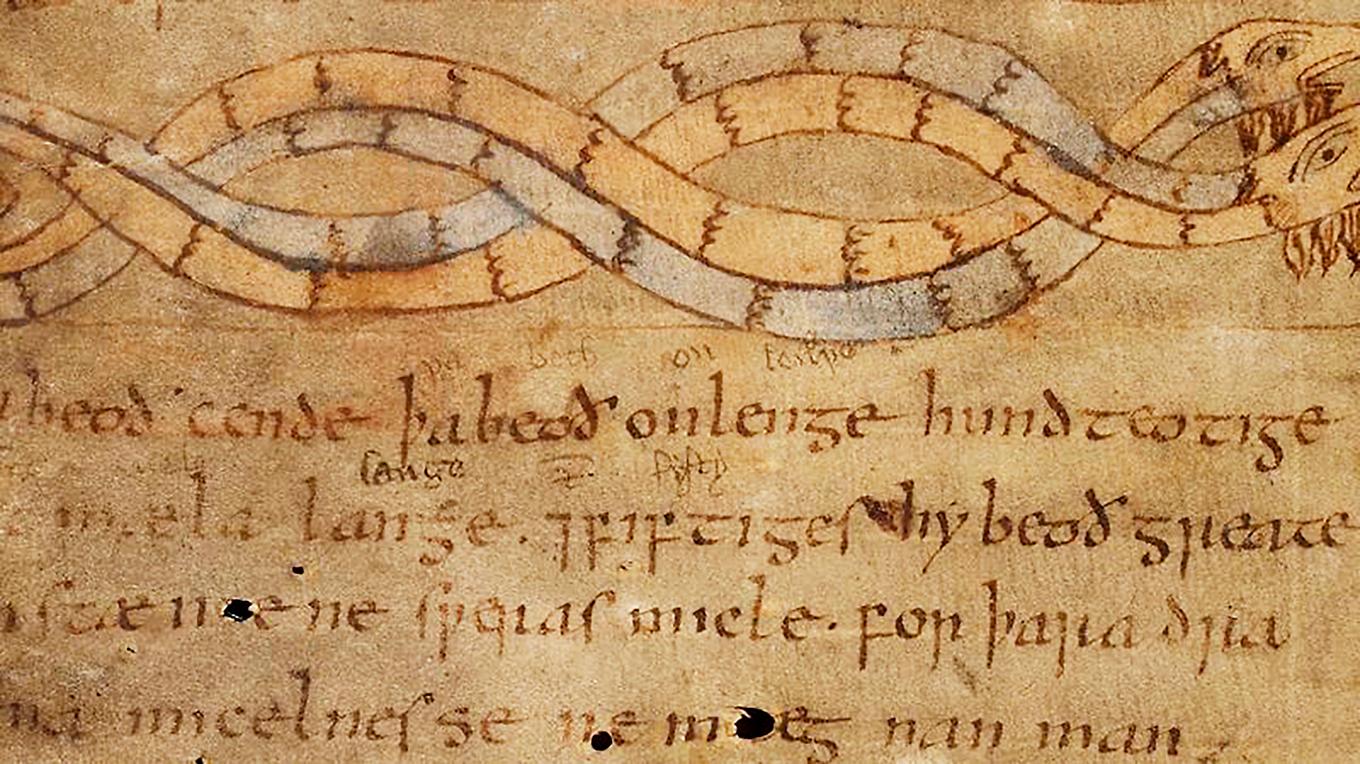 beoð on
beoð cende þa beoð on lenge hundteotige
lange fyfty
mela lange. ⁊ fiftiges hy beoð greate
stænene micle. for þara dra
micelnesse ne mæg nan man